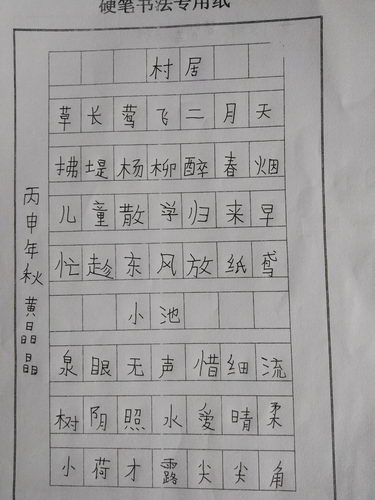 硬笔书法专用纸
村居
草长莺飞二月天
拂堤杨柳醉春烟
儿童散学归来早
忙趁东风放纸鸢
小池
泉眼无声惜细流
树阴照水爱晴柔
小荷才露尖尖角
丙申年秋黄晶晶